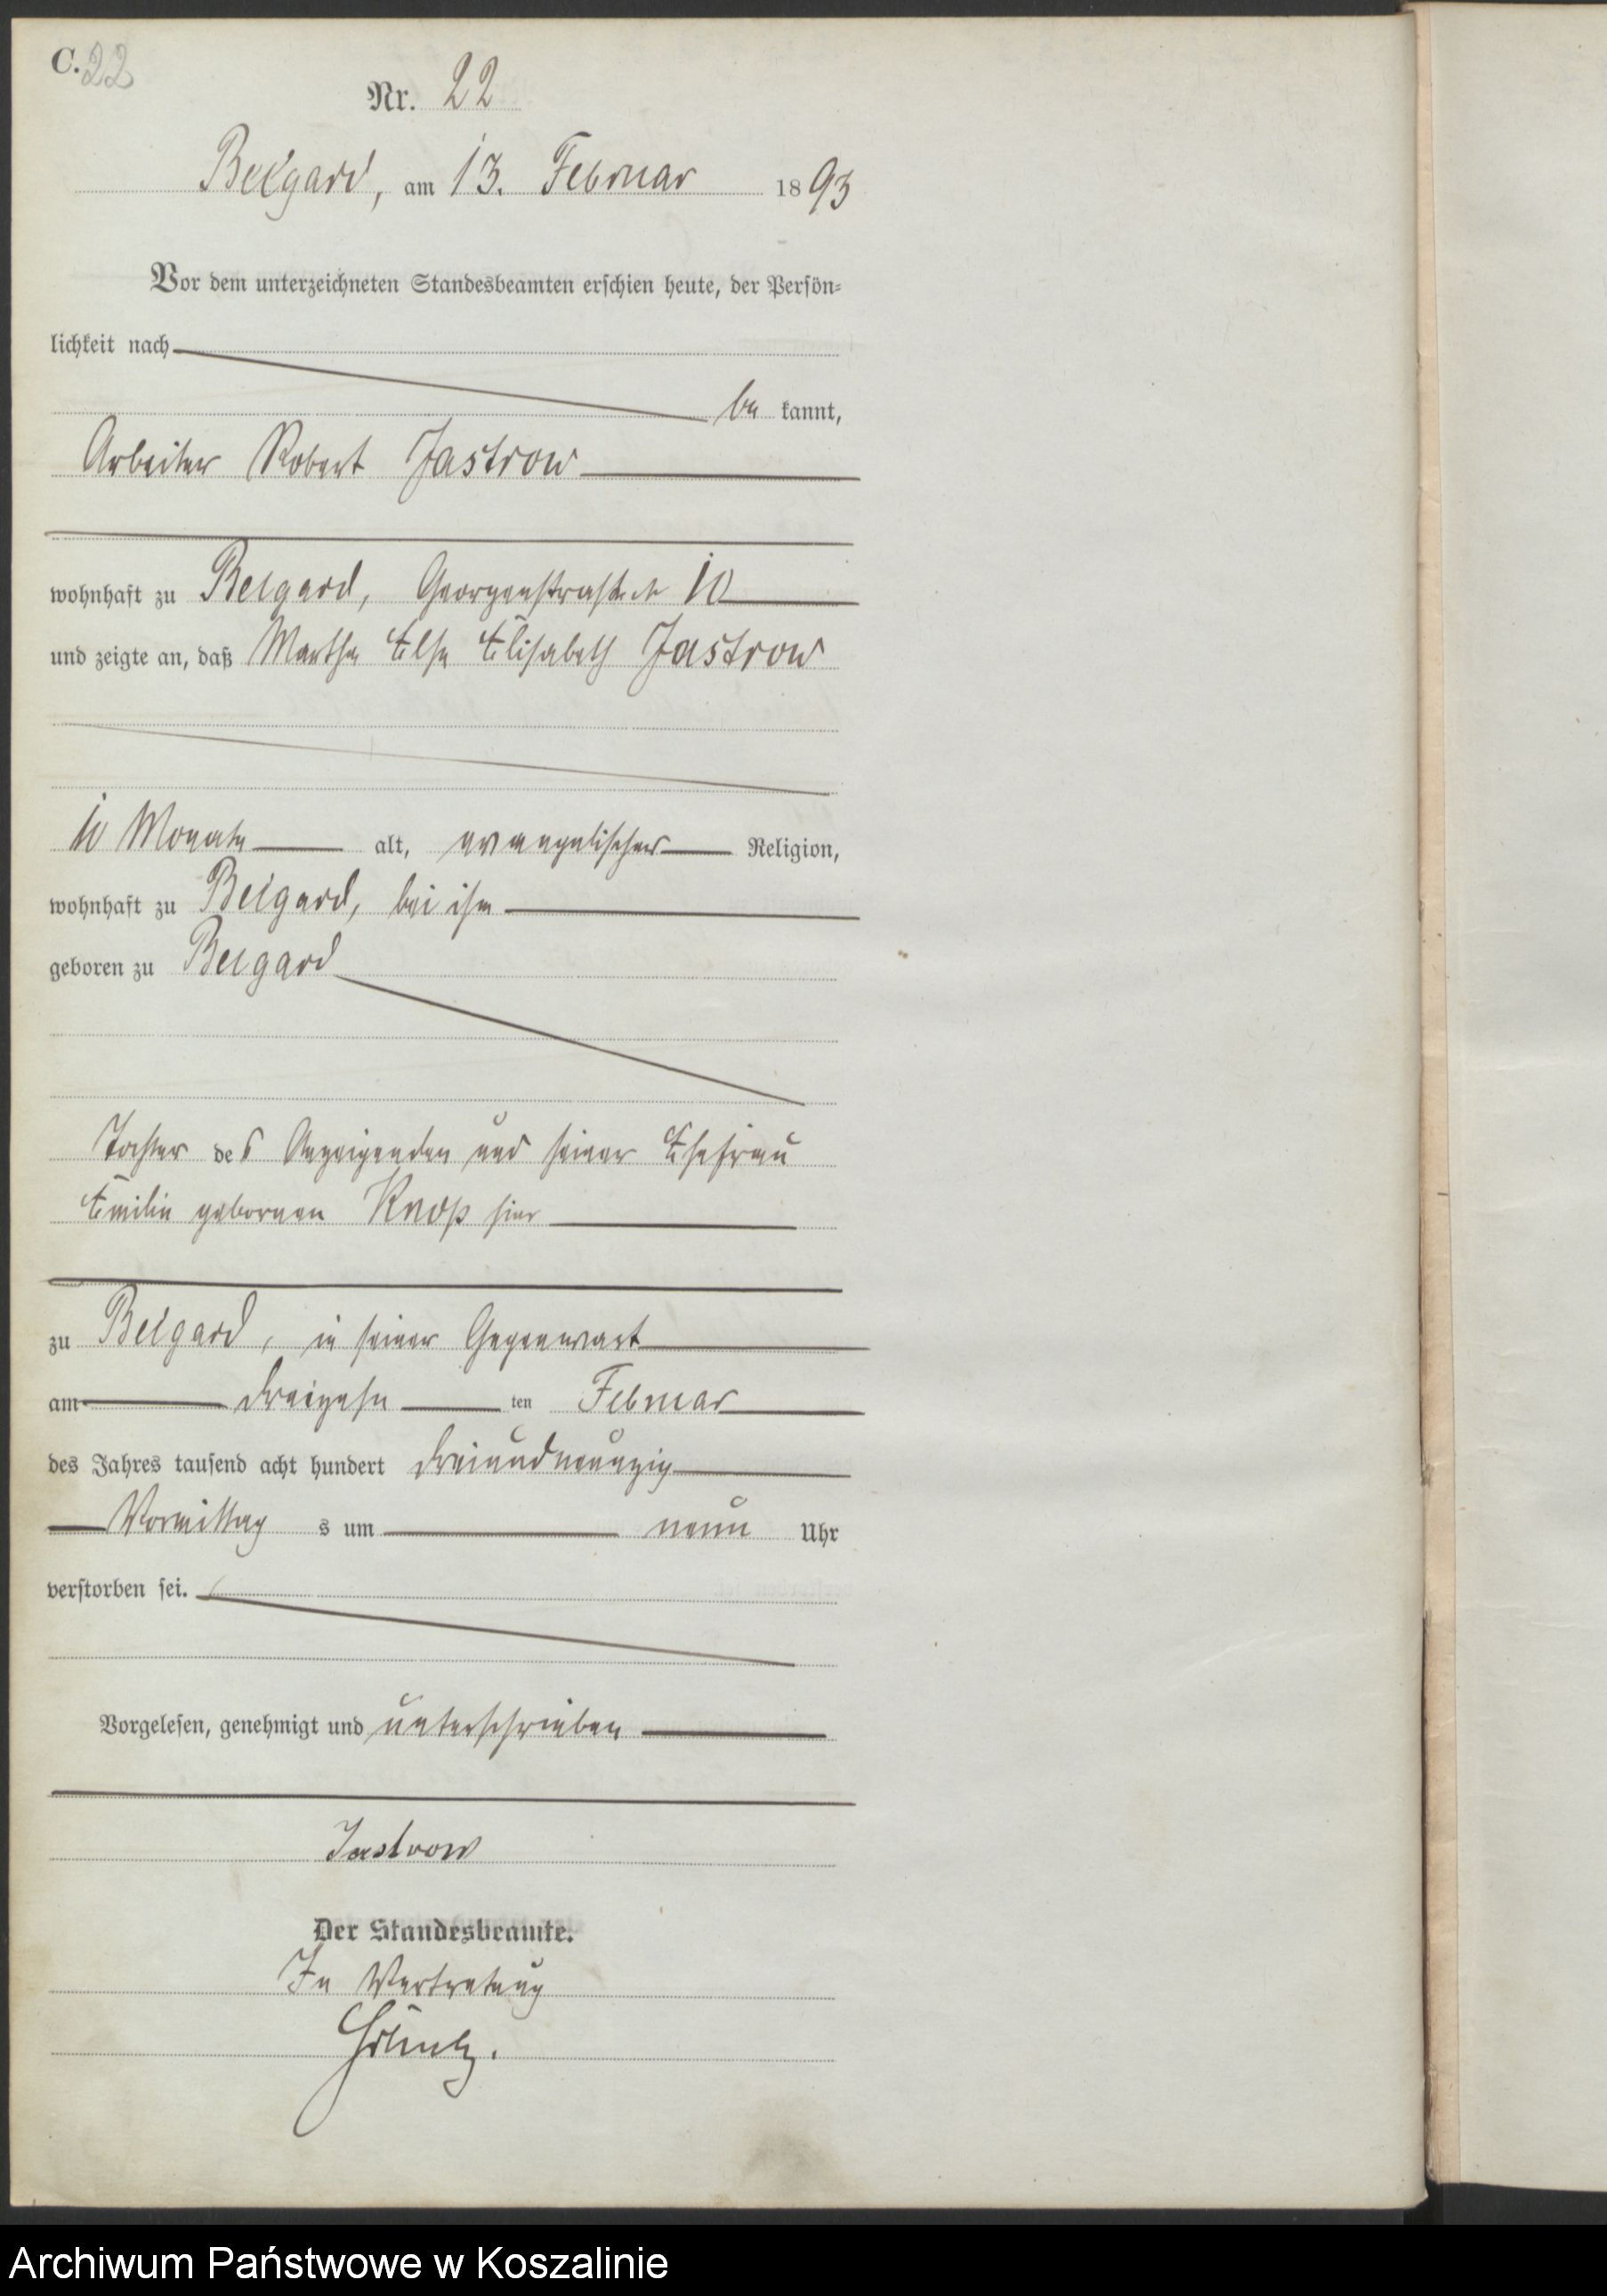 C. 22
Nr. 22
Belgard, am 13. Februar 1893
Vor dem unterzeichneten Standesbeamten erschien heute, der Persön-
lichkeit nach
be kannt,
Arbeiter Robert Jastrow
wohnhaft zu Belgard, Georgenstraße 10
und zeigte an, daß Martha Else Elisabeth Jastrow
10 Monate alt, evangelischer Religion,
wohnhaft zu Belgard, bei ihm
geboren zu Belgard
Tochter des Anzeigenden und seiner Ehefrau
Emilie geborenen Knop hier
zu Belgard, in seiner Gegenwart
am dreizehn ten Februar
des Jahres tausend acht hundert dreiundneunzig
Vormittag s um neun Uhr
verstorben sei.
Vorgelesen, genehmigt und unterschrieben
Jastrow
Der Standesbeamte.
In Vertretung
Archiwum Państwowe w Koszalinie